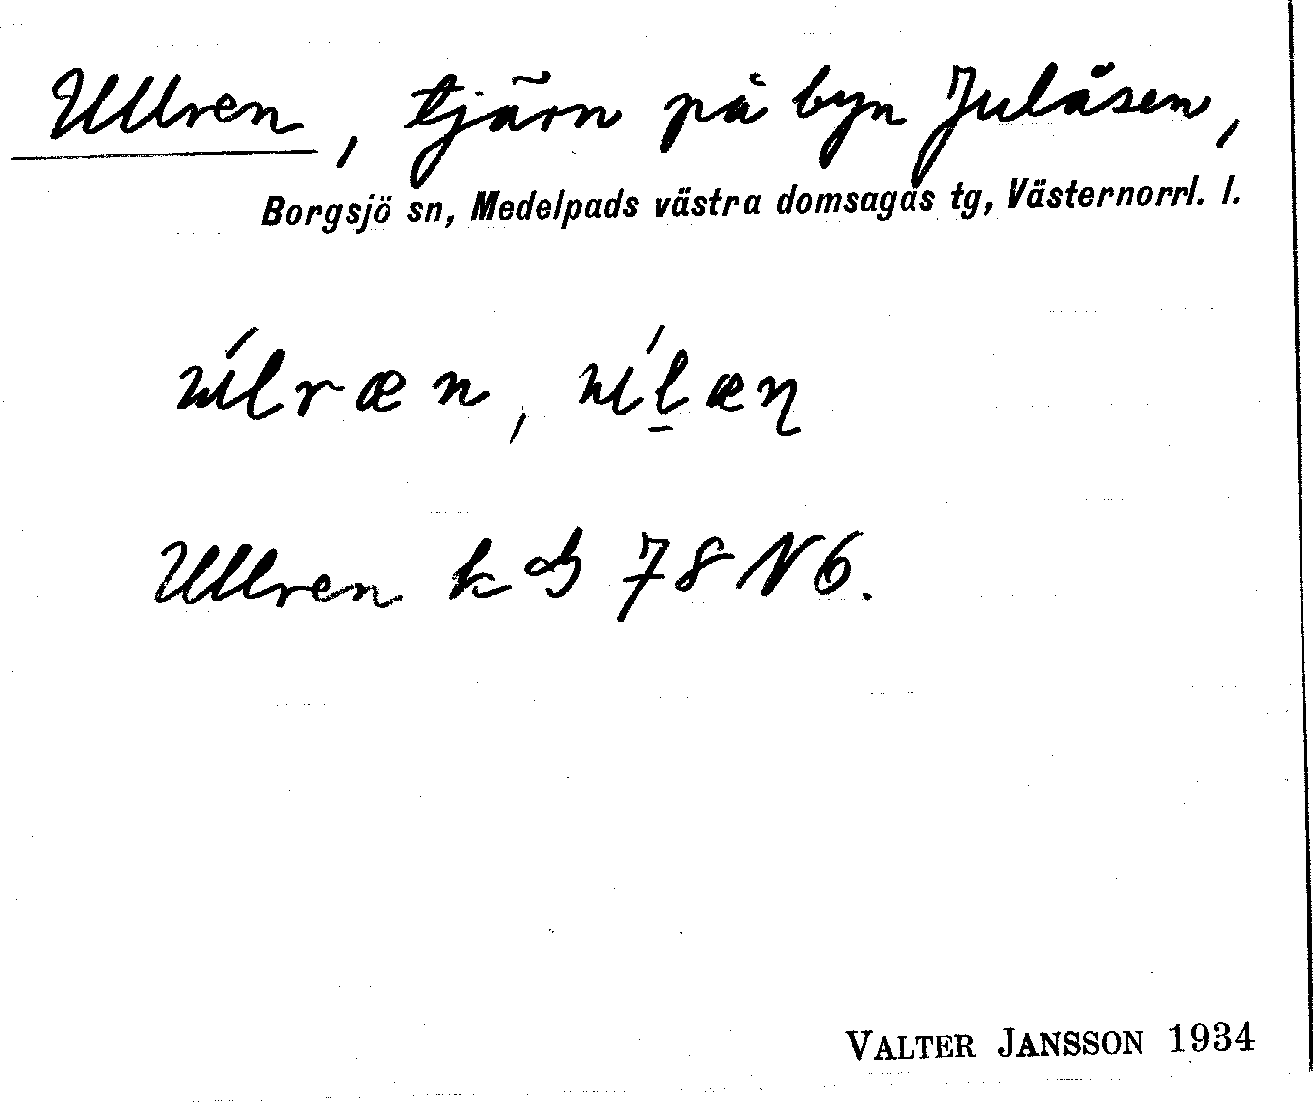 Ullren, tjärn på byn Julåsen,
Borgsjö sn, Medelpads västra domsagas tg, Västernorrl. l.
Ullren kbl 78 N6.
VALTER JANSSON 1934